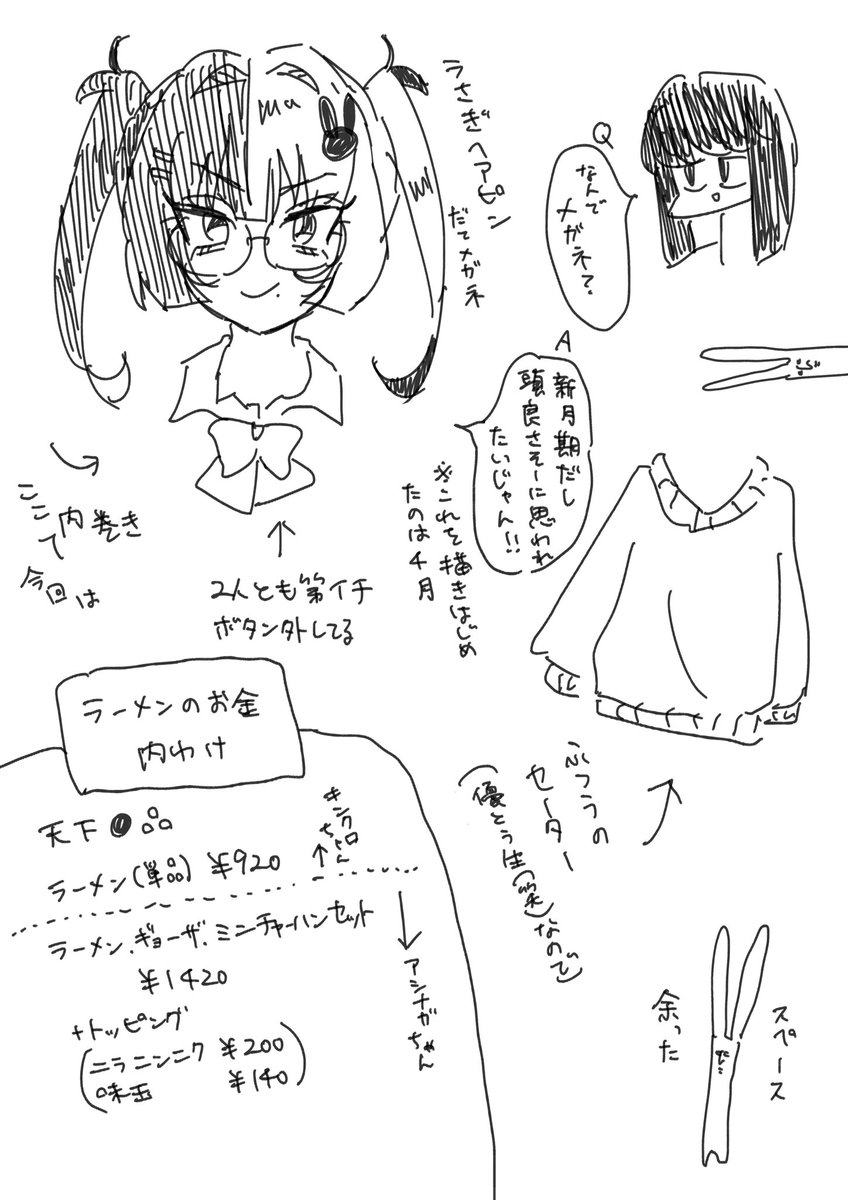 うさぎヘアピン
だてメガネ
Q
なんで
メガネ?
A
新月期だし
頭良さそーに思われ
たいじゃん!!
※これを描きはじめ
たのは4月
ここ内巻き
て
今回は
2人とも第イチ
ボタン外してる
ラーメンのお金
内わけ
天下
ラーメン(単品) ¥920
キンクロちゃん
ラーメン.ギョーザ.ミニチャーハンセット
¥1420
アシナガちゃん
+トッピング
(ニラニンニク ¥200
味玉 ¥140)
ふつうの
セーター
(優とう生(笑)なので)
スペース
余った